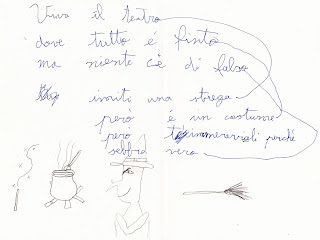 Viva il teatro
dove tutto é finto
ma niente c'è di falso
imiti una strega
però é un costume
però t'immervigli perché
sebbra vero